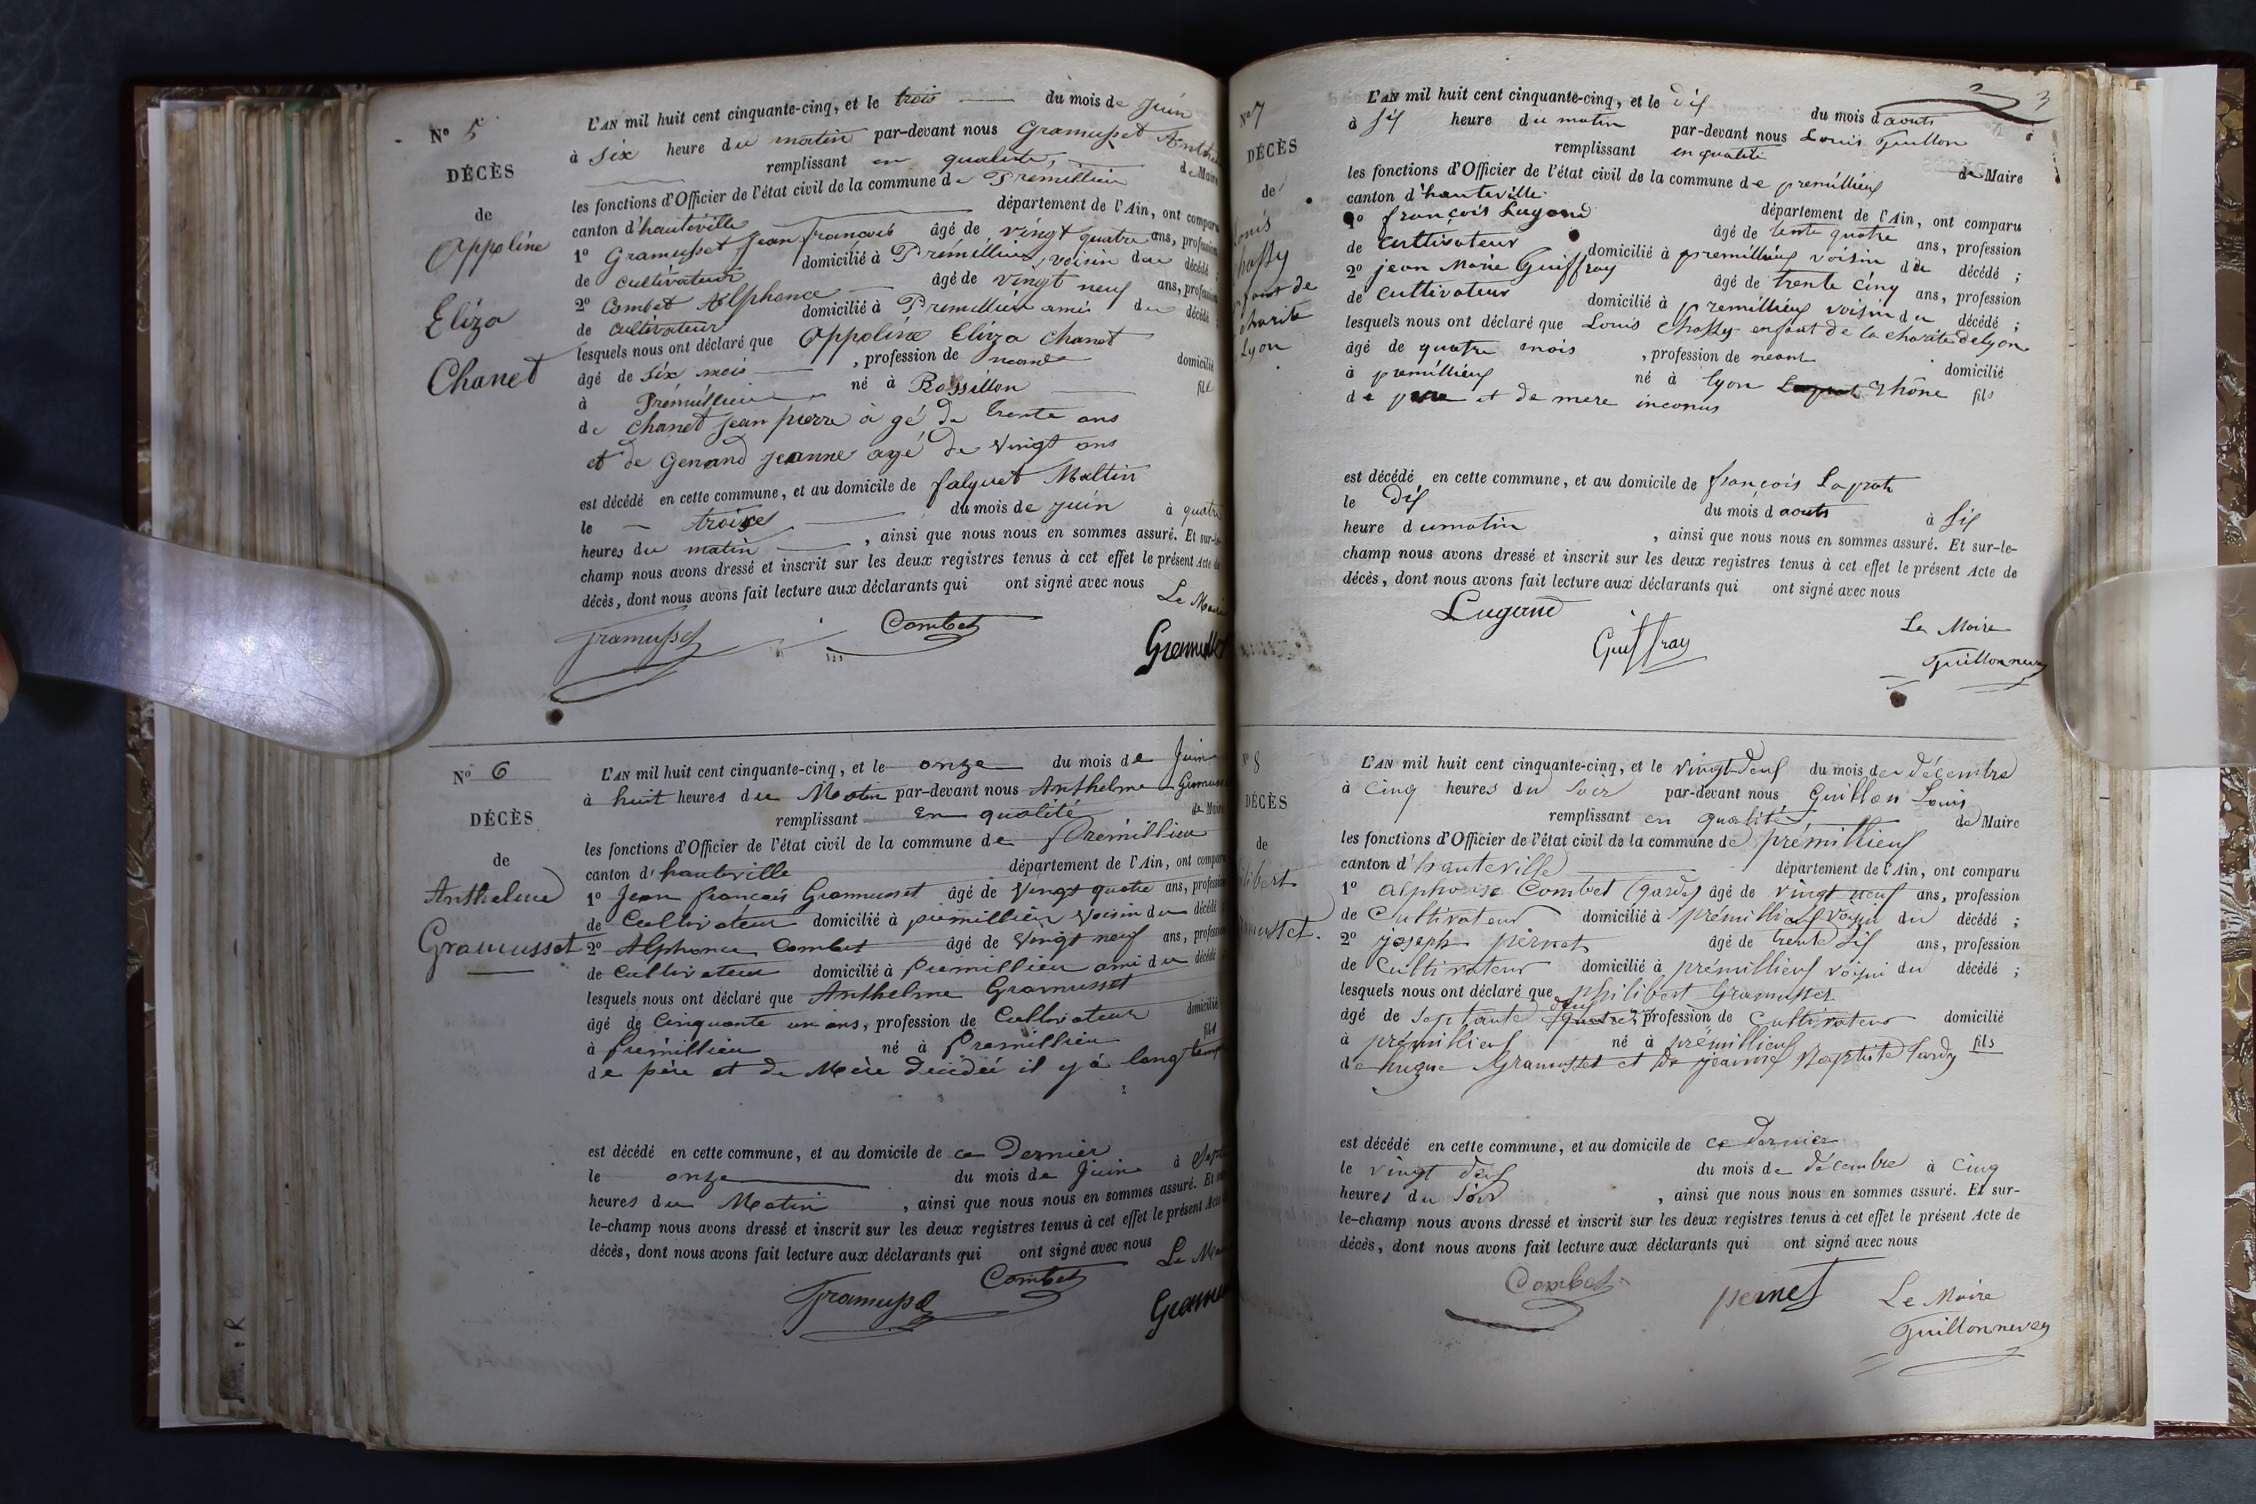 N° 5
DÉCÈS
de
Appoline
Eliza
Chanet
L'AN mil huit cent cinquante-cinq, et le trois du mois de Juin
à six heure du matin par-devant nous Gramusset
remplissant en qualité, de Maire
les fonctions d'Officier de l'état civil de la commune de Prémillieu
canton d'hauteville département de l'Ain, ont comparu
1° Gramusset Jean françois âgé de vingt quatre ans, profession
de cultivateur domicilié à Prémillieu, voisin du décédé ;
2° Combet Alphonce âgé de vingt neuf ans, profession
de cultivateur domicilié à Prémillieu ami du décédé
lesquels nous ont déclaré que Appoline Eliza Chanet
âgé de six mois , profession de néant domicilié
à Prémillieu né à Rossillon fil
de Chanet Jean pierre à gé de trente ans
et de Genand jeanne agé de vingt ans
est décédé en cette commune, et au domicile de falquet Maltin
le troixe du mois de juin à quatre
heures du matin , ainsi que nous nous en sommes assuré. Et sur-le-
champ nous avons dressé et inscrit sur les deux registres tenus à cet effet le présent Acte de
décès, dont nous avons fait lecture aux déclarants qui ont signé avec nous
Le Maire
Gramusset Combet Gramusset
N° 6
DÉCÈS
de
Anthelme
Gramusset
L'AN mil huit cent cinquante-cinq, et le onze du mois de Juin
à huit heures du Matin par-devant nous Anthelme Gramusset
remplissant En qualité de Maire
les fonctions d'Officier de l'état civil de la commune de Prémillieu
canton d'hauteville département de l'Ain, ont comparu
1° Jean françois Gramusset âgé de Vingt quatre ans, profession
de Cultivateur domicilié à prémillieu Voisin du décédé
2° Alphonce Combet âgé de Vingt neuf ans, profession
de Cultivateur domicilié à Prémillieu ami du décédé
lesquels nous ont déclaré que Anthelme Gramusset
âgé de Cinquante un ans, profession de Cultivateur domicilié
à Prémillieu né à Prémillieu fils
de père et de Mère décédé il y à long temps
est décédé en cette commune, et au domicile de ce Dernier
le onze du mois de Juin à Sept
heures du Matin , ainsi que nous nous en sommes assuré. Et sur-
le-champ nous avons dressé et inscrit sur les deux registres tenus à cet effet le présent Acte
décès, dont nous avons fait lecture aux déclarants qui ont signé avec nous
Le Maire
Gramusset Combet
3
N° 7
DÉCÈS
de
Chassy
charité
Lyon
L'AN mil huit cent cinquante-cinq, et le dix du mois d'aouts
à six heure du matin par-devant nous Louis Guillon
remplissant en qualité de Maire
les fonctions d'Officier de l'état civil de la commune de premillieux
canton d'hauteville département de l'Ain, ont comparu
1° françois Lugand âgé de trente quatre ans, profession
de cultivateur domicilié à premillieux voisin du décédé ;
2° jean Marie Guiffray âgé de trente cinq ans, profession
de cultivateur domicilié à premillieux voisin du décédé ;
lesquels nous ont déclaré que Louis Chassy enfant de la charité de Lyon
âgé de quatre mois , profession de néant domicilié
à premillieux né à lyon rhône fils
de père et de mere inconus
est décédé en cette commune, et au domicile de françois
le dix du mois d'aouts à six
heure du matin , ainsi que nous nous en sommes assuré. Et sur-le-
champ nous avons dressé et inscrit sur les deux registres tenus à cet effet le présent Acte de
décès, dont nous avons fait lecture aux déclarants qui ont signé avec nous
Lugand Guiffray
Le Maire
Guillon
N° 8
DÉCÈS
de
L'AN mil huit cent cinquante-cinq, et le vingt deux du mois de décembre
à cinq heures du soir par-devant nous Guillon Louis
remplissant en qualité de Maire
les fonctions d'Officier de l'état civil de la commune de prémillieux
canton d'hauteville département de l'Ain, ont comparu
1° alphonse Combet (garde) âgé de vingt neuf ans, profession
de cultivateur domicilié à prémillieux voisin du décédé ;
2° joseph pernet âgé de trente six ans, profession
de cultivateur domicilié à prémillieux voisin du décédé ;
lesquels nous ont déclaré que philibert Gramusset
âgé de septante deux quatre profession de cultivateur domicilié
à prémillieux né à prémillieux fils
de hugue Gramusset et de jeanne Baptiste
est décédé en cette commune, et au domicile de ce dernier
le vingt deux du mois de décembre à cinq
heures du soir , ainsi que nous nous en sommes assuré. Et sur-
le-champ nous avons dressé et inscrit sur les deux registres tenus à cet effet le présent Acte de
décès, dont nous avons fait lecture aux déclarants qui ont signé avec nous
Combet pernet Le Maire
Guillon